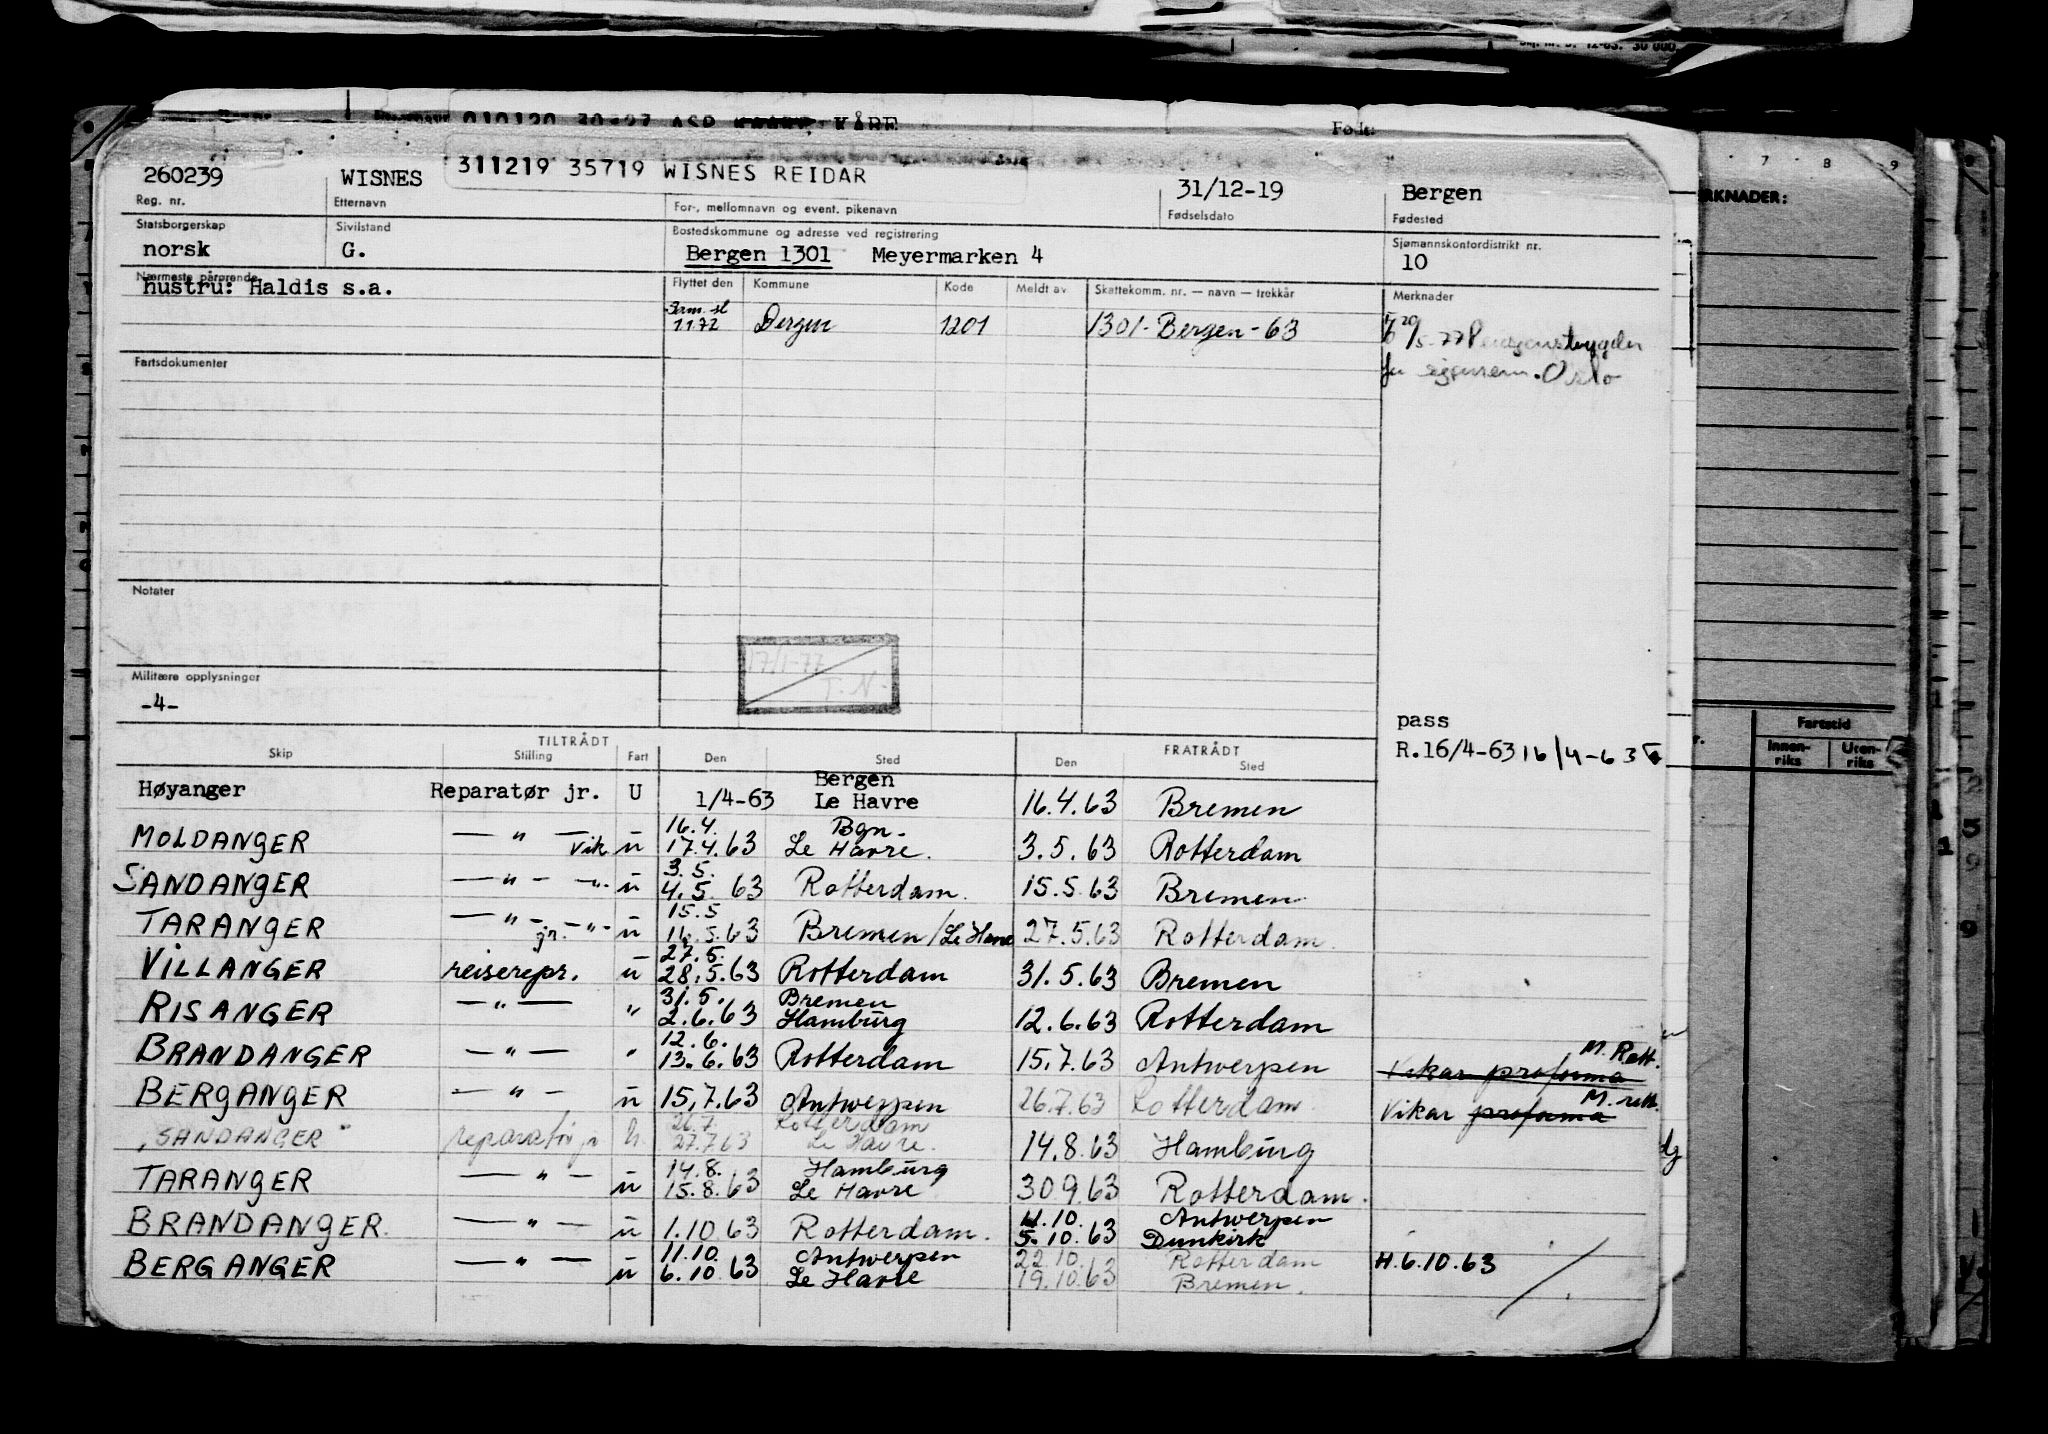 Skj. nr. 5. 12-63. 30 000
010120 KÅRE
Født
7 8 9
MERKNADER:
311219 35719 WISNES REIDAR
260239 WISNES 31/12-19 Bergen
Reg. nr. Etternavn For-, mellomnavn og event. pikenavn Fødselsdato Fødested
Statsborgerskap Sivilstand Bostedskommune og adresse ved registrering Sjømannskontordistrikt nr.
norsk G. Bergen 1301 Meyermarken 4 10
Nærmeste pårørende Flyttet den Kommune Kode Meldt av Skattekomm. nr. — navn — trekkår Merknader
hustru: Haldis s.a.
1172 Bergen 1201 1301-Bergen-63
Oslo
Fartsdokumenter
Notater
17/1-77
T.N.
Militære opplysninger
-4-
pass
R.16/4-63 16/4-63
TILTRÅDT FRATRÅDT
Skip Stilling Fart Den Sted Den Sted
Fartstid
Innen-riks Uten-riks
Bergen
Høyanger Reparatør jr. U 1/4-63 Le Havre 16.4.63 Bremen
16.4. Bgn.
MOLDANGER — " — Vik u 17.4.63 Le Havre. 3.5.63 Rotterdam
3.5.
SANDANGER — " — —"— u 4.5.63 Rotterdam. 15.5.63 Bremen
15.5
TARANGER — " — —"— u 16.5.63 Bremen/Le Havre 27.5.63 Rotterdam.
jr. 27.5.
VILLANGER reiserepr. u 28.5.63 Rotterdam 31.5.63 Bremen
31.5. Bremen
RISANGER — " — " 2.6.63 Hamburg 12.6.63 Rotterdam
12.6.
BRANDANGER — " — " 13.6.63 Rotterdam 15.7.63 Antwerpen Vikar proforma M. Rott.
BERGANGER — " — u 15.7.63 Antwerpen 26.7.63 Rotterdam Vikar proforma M. rott.
26.7 Rotterdam
"SANDANGER" reparatør jr. u. 27.7.63 Le Havre. 14.8.63 Hamburg
14.8. Hamburg
TARANGER — " — u 15.8.63 Le Havre 30.9.63 Rotterdam.
11.10. Antwerpen
BRANDANGER. — " — u 1.10.63 Rotterdam. 5.10.63 Dunkirk
11.10. Antwerpen 22.10. Rotterdam
BERGANGER — " — u 6.10.63 Le Havre 19.10.63 Bremen. H.6.10.63